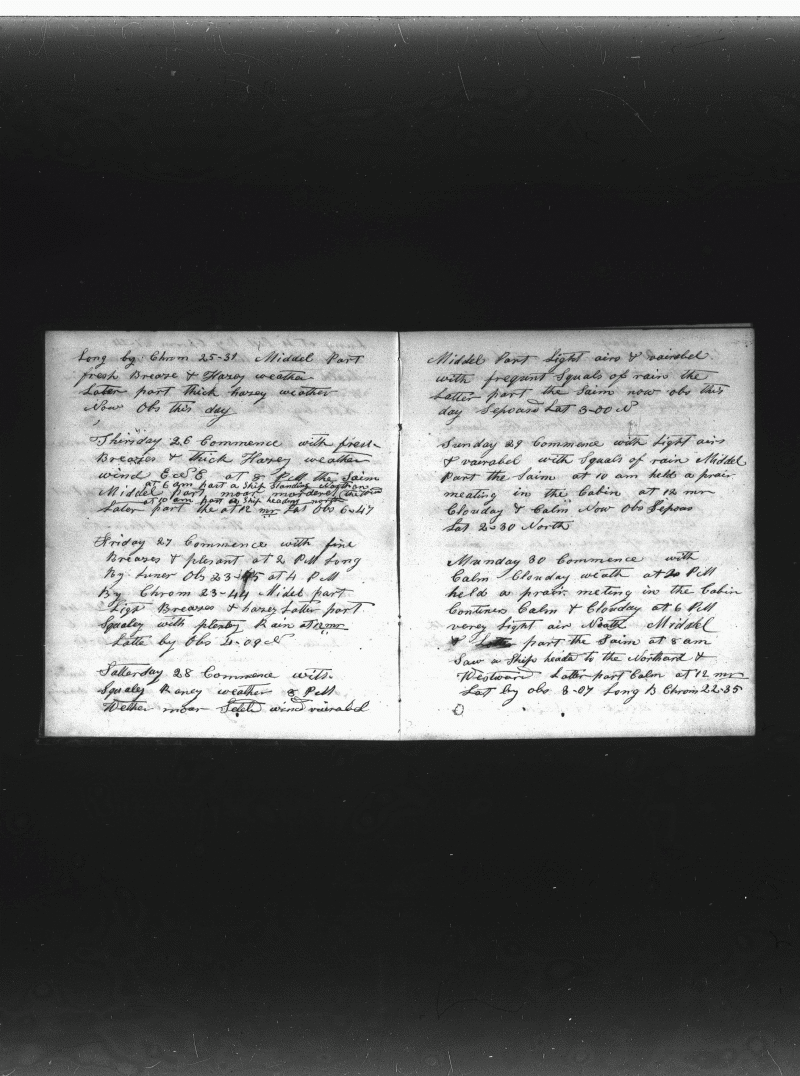 Long by Chron 25-31 Middel Part
fresh Breaze & Hazey weather
Later part thick hazey weather
Now Obs this day
Thursday 26 Commence with fresh
Breazes & thick Hazey weather
wind E S E at 8 P M the Saim
at 6 am past a Ship Standing Northan
Middel part moar morderet
at 10 am past a Ship heading north
Later part the at 12 mr Lat Obs 6-47
Friday 27 Commence with fine
Breazes & plesant at 2 P M Long
By Luner Obs 23-45 at 4 P M
By Chrom 23-44 Midel part
Ligt Breazes & hazey Latter part
Squaley with plenty Rain at 12 mr
Latte by Obs 4-09 N
Satterday 28 Commence with
Squaley Raney weather 8 P M
Wether moar Settle wind vairabel
Middel Part Light airs & vairabel
with frequnt Squals of rain the
Latter part the Saim now obs this
day Sepoard Lat 3-00 N
Sunday 29 Commence with Light airs
& vairabel with Squals of rain Middel
Part the Saim at 10 am held a prair
meating in the Cabin at 12 mr
Clouday & Calm Now Obs Sepos
Lat 2-30 North
Munday 30 Commence with
Calm Clouday weath at 2 P M
held a prair meting in the Cabin
Continues Calm & Clouday at 6 P M
verey Light air North Middel
& part the Saim at 8 am
Saw a Ship heade to the Northard &
Westward Latter part Calm at 12 mr
Lat by obs 3-07 Long B Chrom 22-35